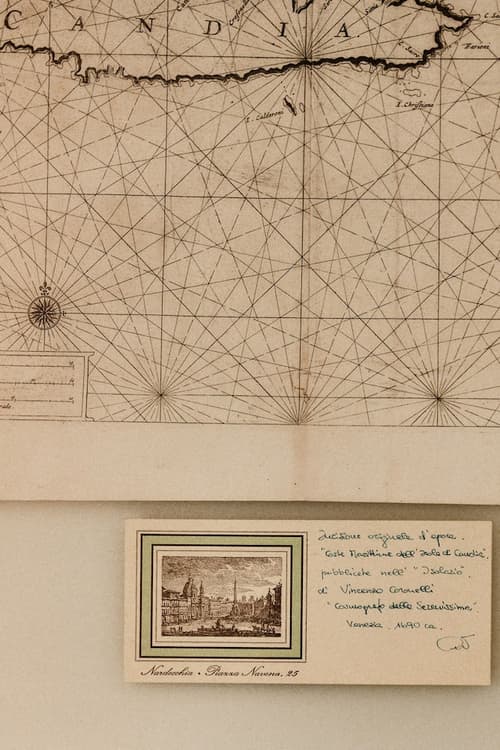 CANDIA
I. Calderoni
I. Christiana
Incisione originale d'epoca.
"Coste Marittime dell'Isola di Candia".
pubblicate nell' "Isolario".
di Vincenzo Coronelli
"Cosmografo della Serenissima".
Venezia. 1690 ca.
Nardecchia • Piazza Navona, 25